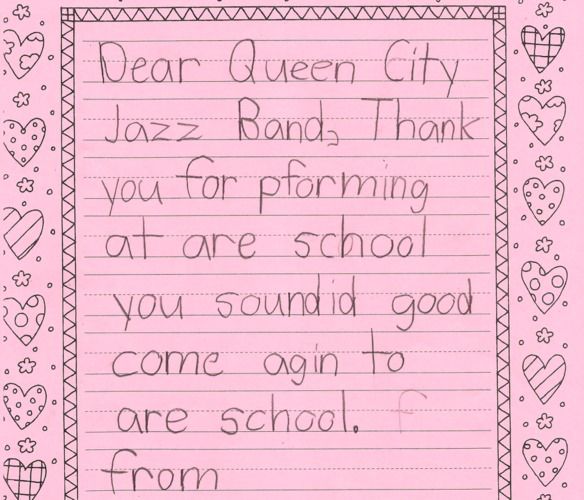 Dear Queen City
Jazz Band, Thank
you for pforming
at are school
you soundid good
come agin to
are school. f
from